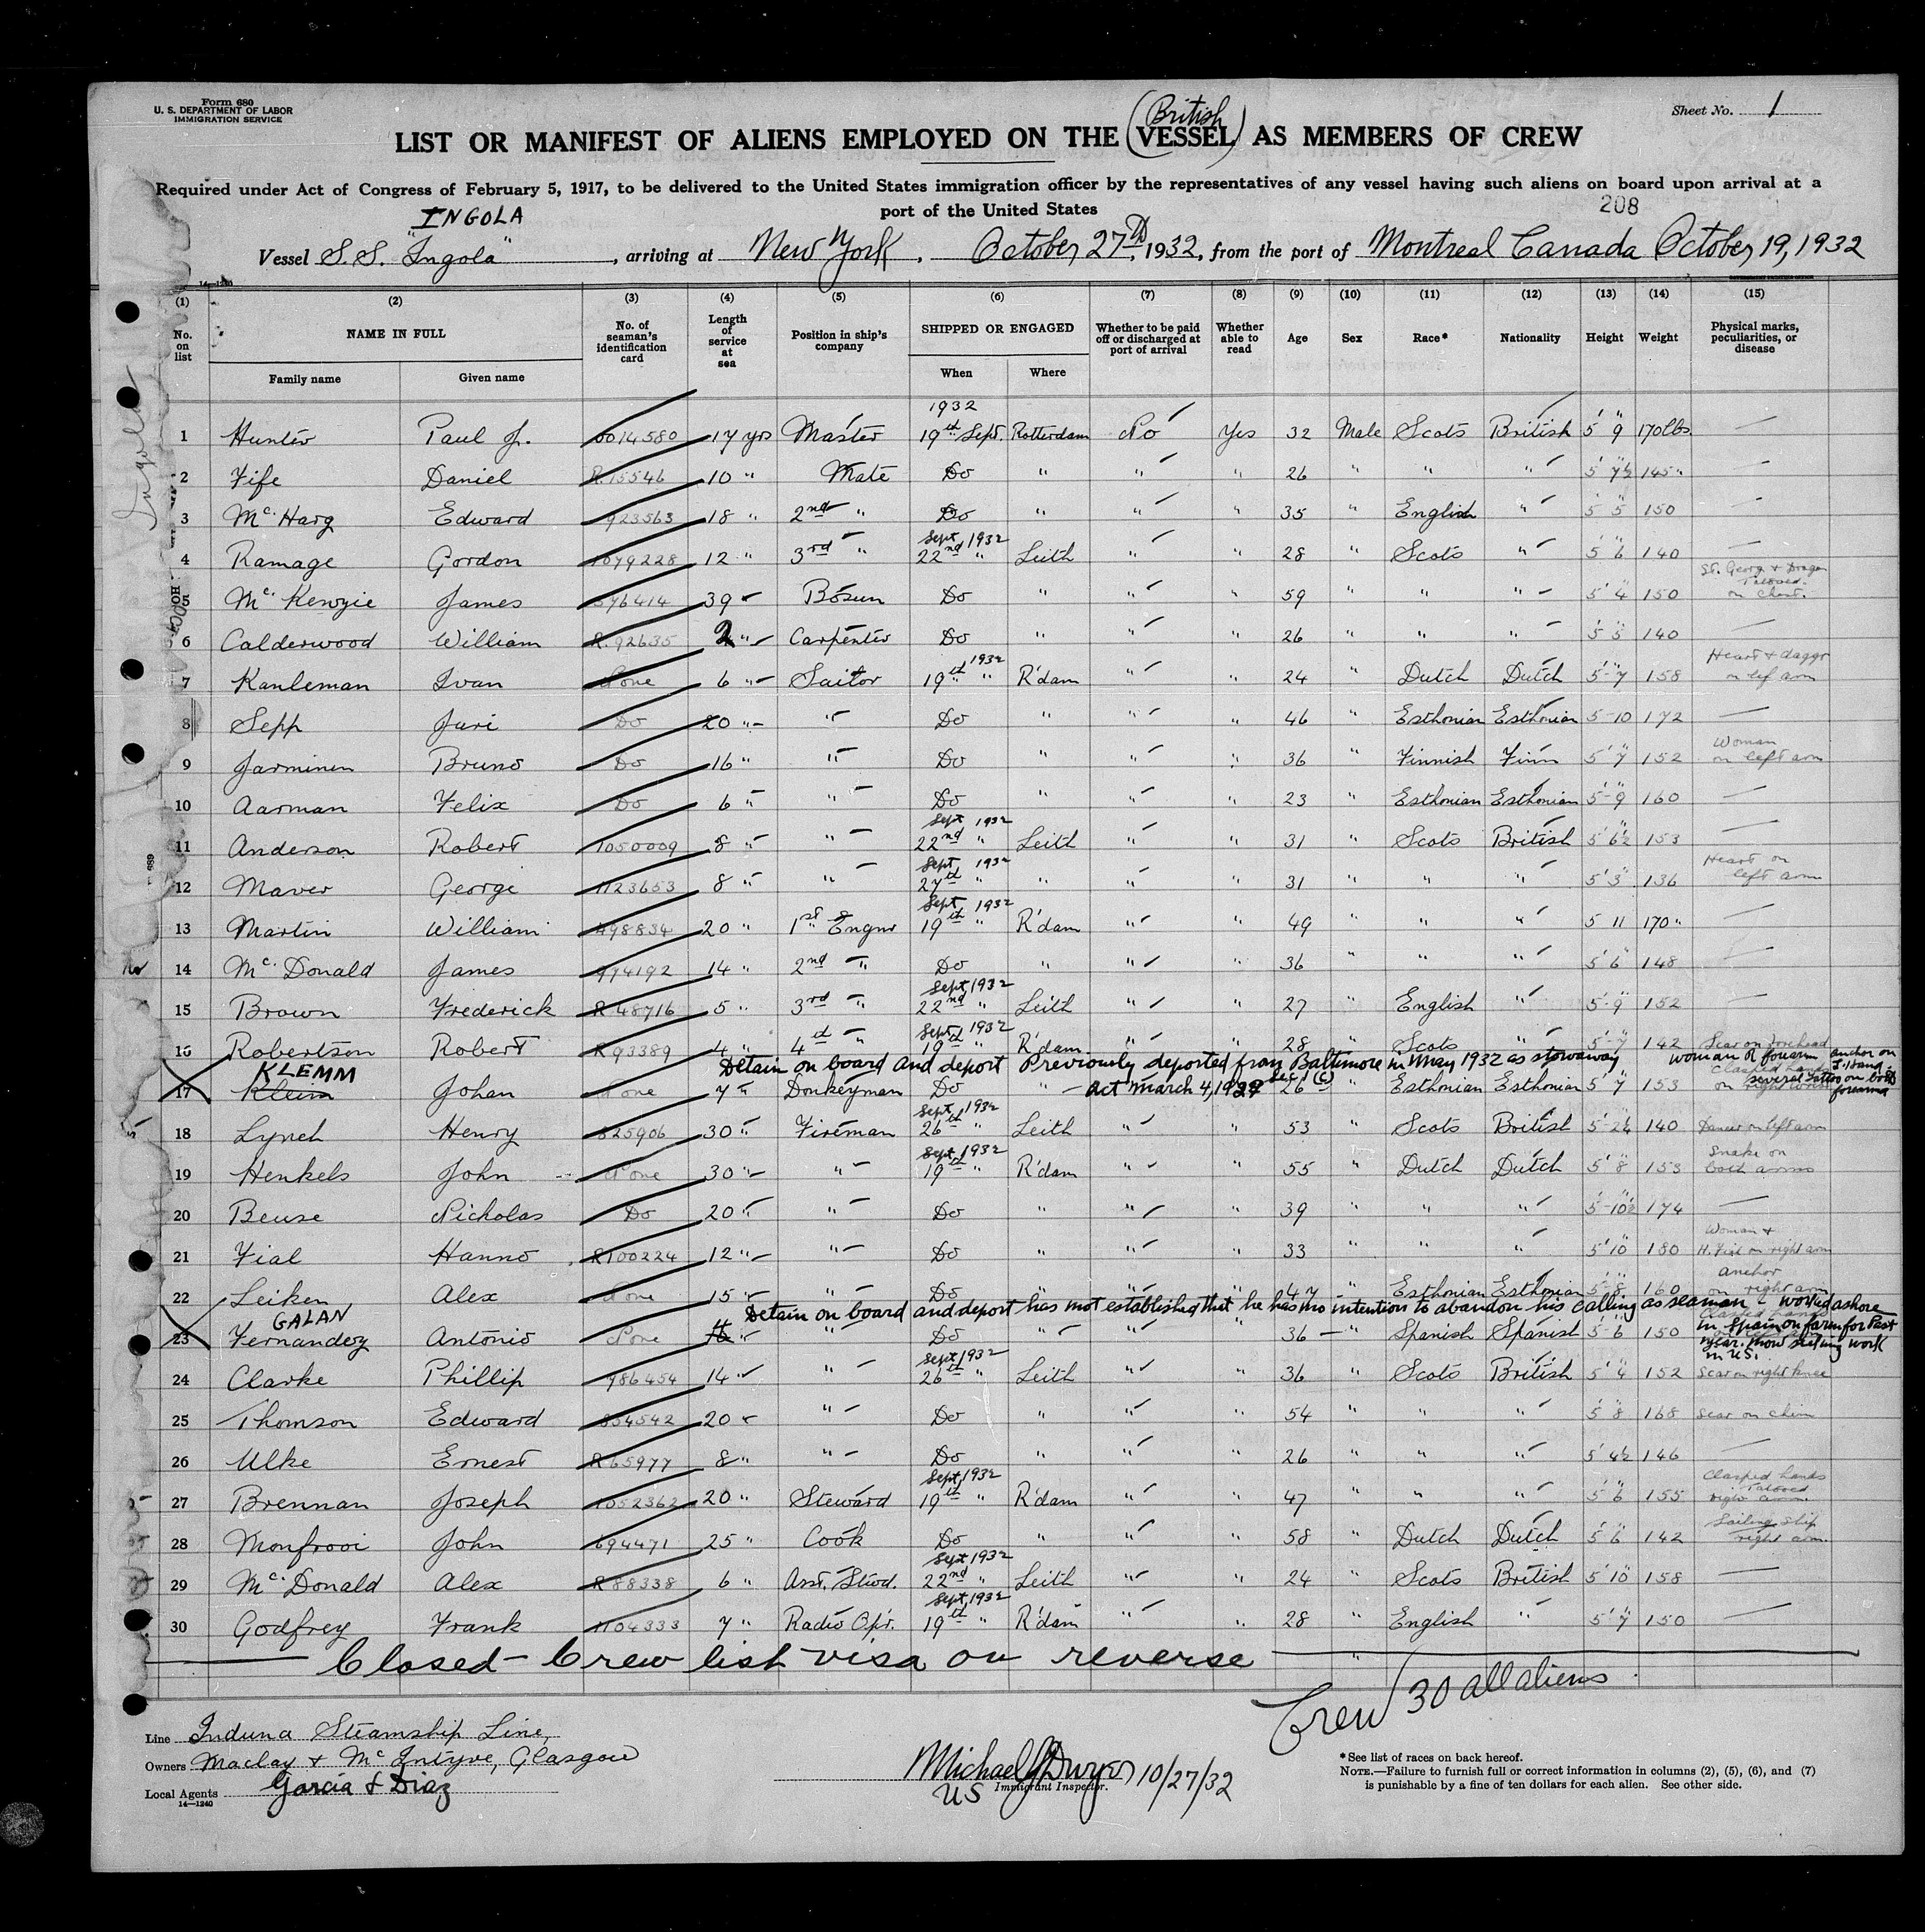 Form 680
U. S. DEPARTMENT OF LABOR
IMMIGRATION SERVICE
Sheet No. 1
(British)
LIST OR MANIFEST OF ALIENS EMPLOYED ON THE VESSEL AS MEMBERS OF CREW
Required under Act of Congress of February 5, 1917, to be delivered to the United States immigration officer by the representatives of any vessel having such aliens on board upon arrival at a
port of the United States
208
INGOLA
Vessel S.S. "Ingola", arriving at New York, October 27th, 1932, from the port of Montreal Canada October 19, 1932
14—1240
(1) (2) (3) (4) (5) (6) (7) (8) (9) (10) (11) (12) (13) (14) (15)
No. on list NAME IN FULL No. of seaman's identification card Length of service at sea Position in ship's company SHIPPED OR ENGAGED Whether to be paid off or discharged at port of arrival Whether able to read Age Sex Race* Nationality Height Weight Physical marks, peculiarities, or disease
Family name Given name When Where
1932
1 Hunter Paul J. 0014580 17 yrs Master 19th Sept. Rotterdam No Yes 32 Male Scots British 5' 9" 170lbs. —
2 Fife Daniel R.15546 10 " Mate Do " " " 26 " " " 5' 7½ 145 " —
3 Mc.Harg Edward 923563 18 " 2nd " Do " " " 35 " English " 5' 5" 150 —
Sept 1932
4 Ramage Gordon 1079228 12 " 3rd " 22nd " Leith " " 28 " Scots " 5' 6" 140 —
St. Georg & Dragon Tattooed on chest.
5 Mc. Kenzie James 576414 39 Bosun Do " " " 59 " " " 5' 4" 150
6 Calderwood William R.92635 2 " Carpenter Do " " " 26 " " " 5' 5" 140 —
1932
7 Kanleman Ivan None 6 " Sailor 19th " R'dam " " 24 " Dutch Dutch 5-7 158 Heart & daggr on lef arm
8 Sepp Juri Do 20 " " Do " " " 46 " Esthonian Esthonian 5-10 172 —
9 Jarminen Bruno Do 16 " " Do " " " 36 " Finnish Finn 5' 7" 152 Woman on left arm
10 Aarman Felix Do 6 " " Do " " " 23 " Esthonian Esthonian 5-9 160 —
Sept 1932
11 Anderson Robert 1050009 8 " " 22nd " Leith " " 31 " Scots British 5' 6½ 153 —
Sept 1932
12 Maver George 1123653 8 " " 27th " " " " 31 " " " 5' 3" 136 Heart on left arm
Sept 1932
13 Martin William 498834 20 " 1st Engnr 19th " R'dam " " 49 " " " 5 11 170 " —
14 Mc. Donald James 974192 14 " 2nd " Do " " " 36 " " " 5' 6" 148 —
Sept 1932
15 Brown Frederick R 48716 5 " 3rd " 22nd " Leith " " 27 " English " 5-9 152 —
Sept 1932
16 Robertson Robert R 93389 4 " 4th " 19th " R'dam " " 28 " Scots " 5-7 142 Scar on forehead
Detain on board and deport Previously deported from Baltimore in May 1932 as stowaway
woman R forearm anchor on L. Hand - several Tattoo on both forearms
KLEMM
17 Klein Johan None 7 " Donkeyman Do " — Act March 4, 1929 Sec 1 (c) 26 " Esthonian Esthonian 5' 7" 153 Clasped hands on right
Sept 1932
18 Lynch Henry 825906 30 " Fireman 26th " Leith " " 53 " Scots British 5-2½ 140 Dancer on left arm
Sept 1932
19 Henkels John None 30 " " 19th " R'dam " " 55 " Dutch Dutch 5' 8" 153 Snake on both arms
20 Beuse Nicholas Do 20 " " Do " " " 39 " " " 5-10½ 174 —
21 Fial Hanno R100224 12 " " Do " " " 33 " " " 5' 10" 180 Woman & H. Fial on right arm
22 Leiken Alex None 15 " " Do " " " 47 " Esthonian Esthonian 5-8 160 anchor on right arm
Detain on board and deport has not established that he has no intention to abandon his calling as seaman - worked ashore in Spain on farm for Past year. now seeking work in U.S.
GALAN
23 Fernandez Antonio None " Do " " " 36 — " Spanish Spanish 5-6 150
Sept 1932
24 Clarke Phillip 986454 14 " 26th " Leith " " 36 " Scots British 5' 4" 152 Scar on right knee
25 Thomson Edward 854542 20 " Do " " " 54 " " " 5' 8" 168 Scar on chin
26 Ulke Ernest R65977 8 " " Do " " " 26 " " " 5' 4½ 146 —
Sept 1932
27 Brennan Joseph 1052362 20 " Steward 19th " R'dam " " 47 " " " 5' 6" 155 Clasped hands Tattooed right arm.
28 Monfrooi John 694471 25 " Cook Do " " " 58 " Dutch Dutch 5' 6" 142 Sailing ship right arm.
Sept 1932
29 Mc. Donald Alex R 88338 6 " Asst. Stwd. 22nd " Leith " " 24 " Scots British 5' 10" 158 —
Sept 1932
30 Godfrey Frank 1104333 7 " Radio Opr. 19th " R'dam " " 28 " English " 5' 7" 150 —
Closed - Crew list visa on reverse
Crew 30 all aliens
Line Induna Steamship Line,
Owners Maclay & Mc Intyre, Glasgow
Local Agents Garcia & Diaz
14—1240
Michael J Dwyer 10/27/32
US Immigrant Inspector.
*See list of races on back hereof.
NOTE.—Failure to furnish full or correct information in columns (2), (5), (6), and (7)
is punishable by a fine of ten dollars for each alien. See other side.